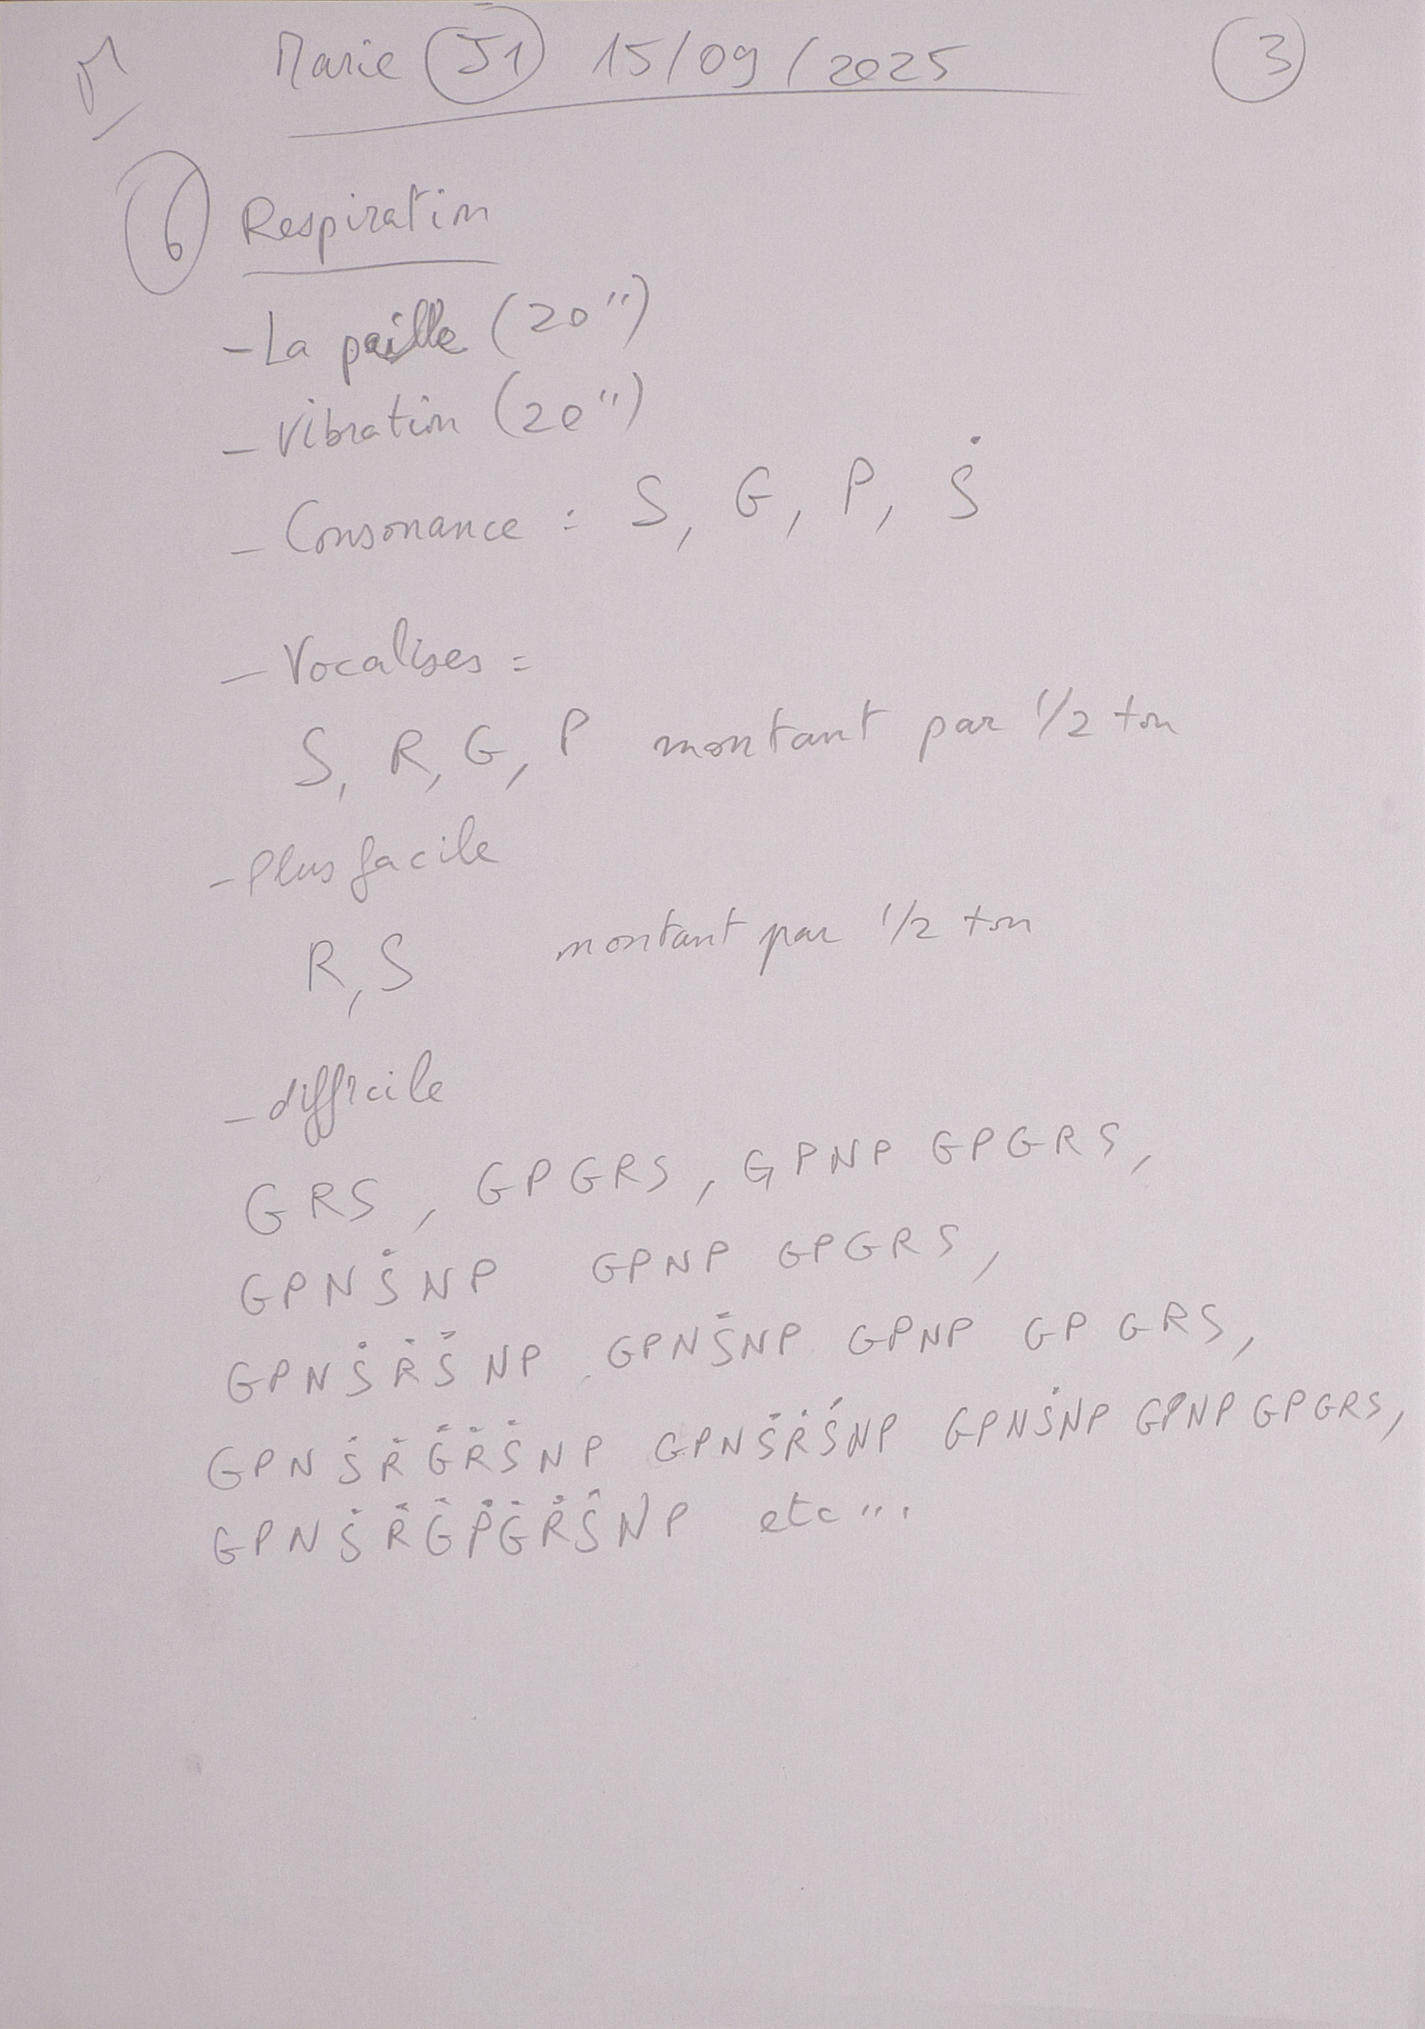 Marie J1 15/09/2025 3
6 Respiration
- La paille (20")
- Vibration (20")
- Consonance : S, G, P, Ṡ
- Vocalises =
S, R, G, P montant par 1/2 ton
- Plus facile
R, S montant par 1/2 ton
- difficile
GRS, GPGRS, GPNP GPGRS,
GPNṠNP GPNP GPGRS,
GPNṠṘṠNP GPNṠNP GPNP GP GRS,
GPNṠṘĠṘṠNP GPNṠṘṠNP GPNṠNP GPNP GPGRS,
GPNṠṘĠṖĠṘṠNP etc...